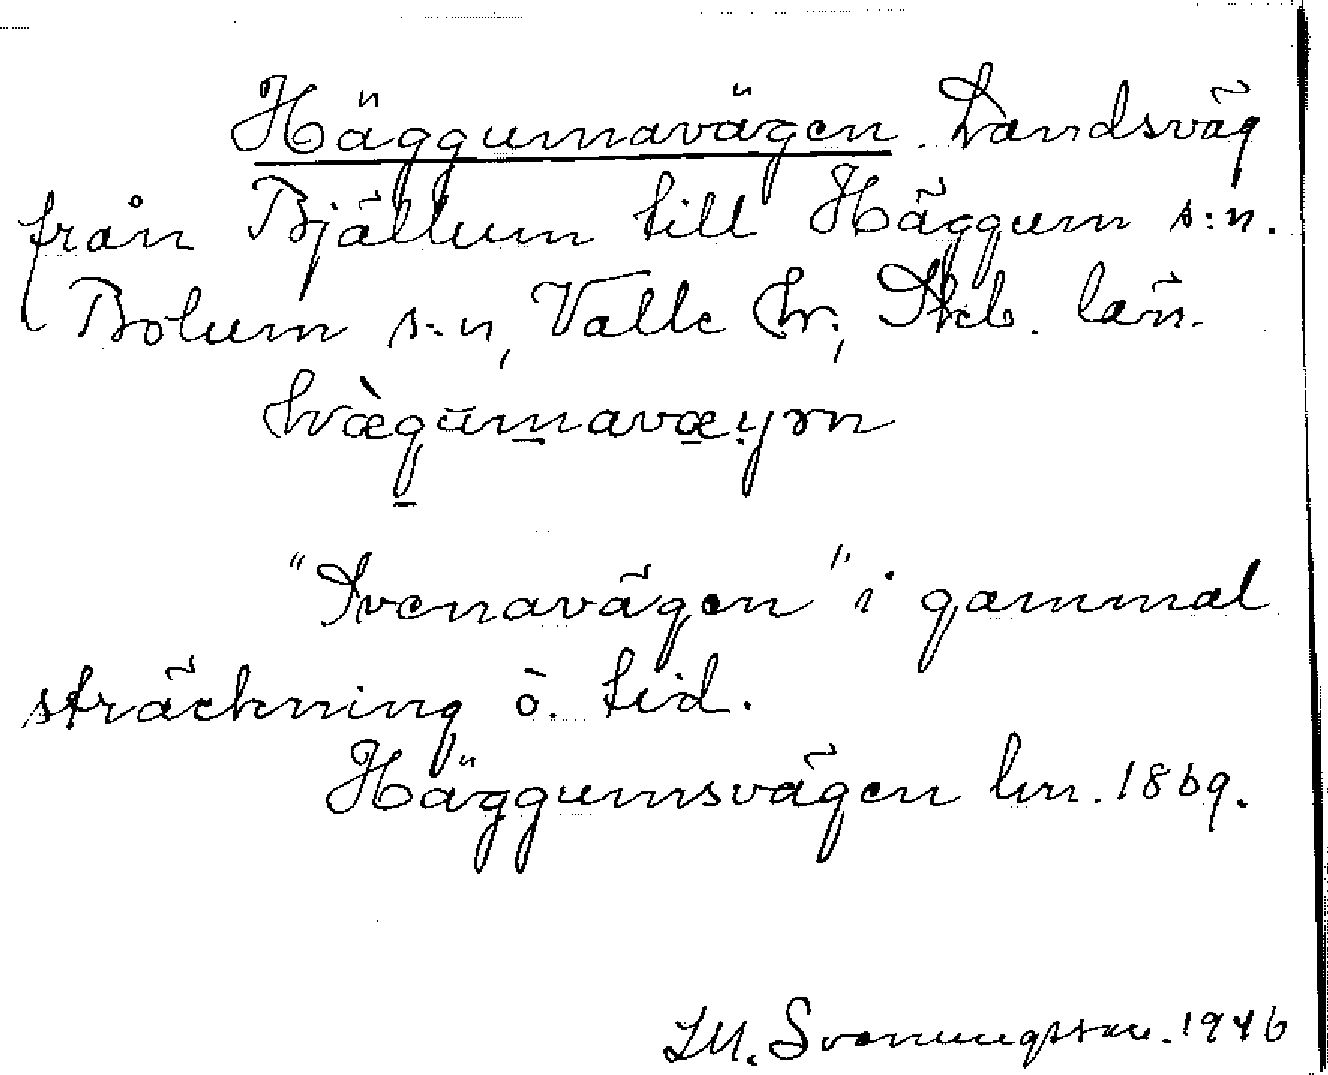 Häggumavägen. Landsväg
från Bjällum till Häggum s:n.
Bolum s:n, Valle hr, Skb. län.
"Svenavägen" i gammal
sträckning ö. tid.
Häggumsvägen hm. 1869.
M. Svenungsson. 1946